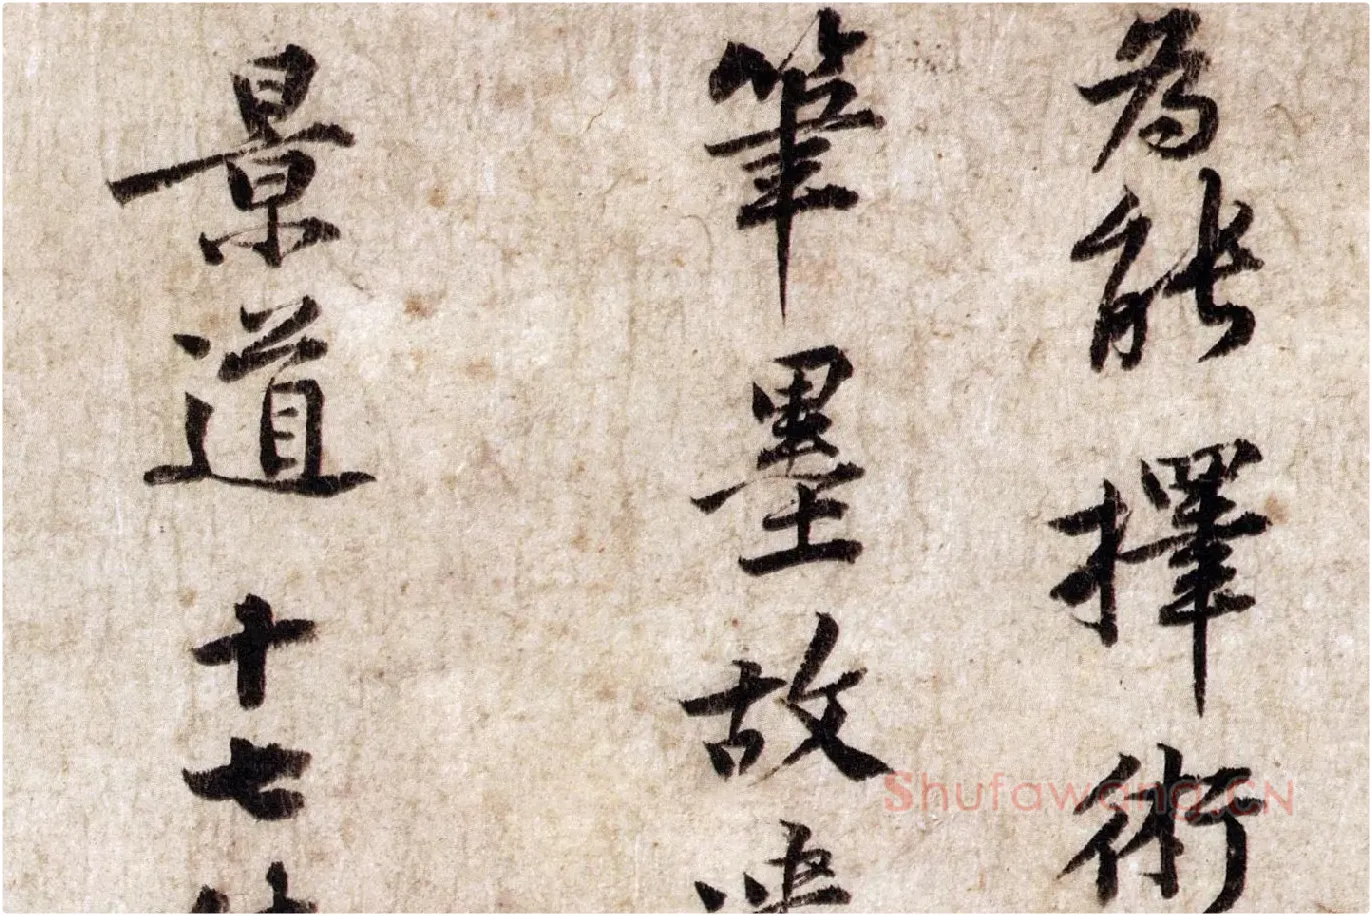 為能擇術
筆墨故
景道十七
Shufawang.CN